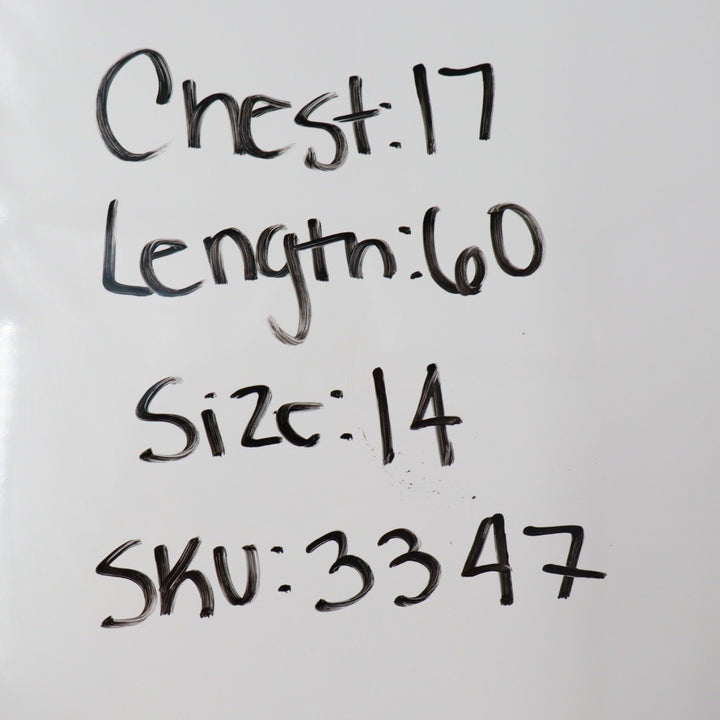 Chest:17
Length:60
Size:14
SKU:3347